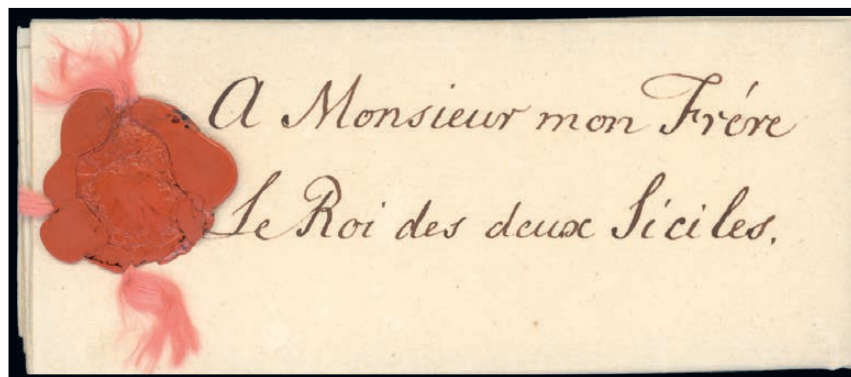 A Monsieur mon Frére
Le Roi des deux Siciles.